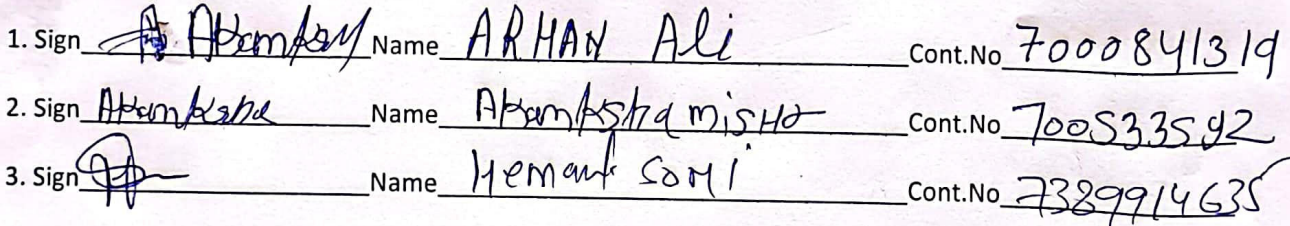 1. Sign Name ARHAN Ali Cont.No 7000841319
2. Sign Akanksha Name Akanksha mishra Cont.No 700533592
3. Sign Name Hemant soni Cont.No 7389914635